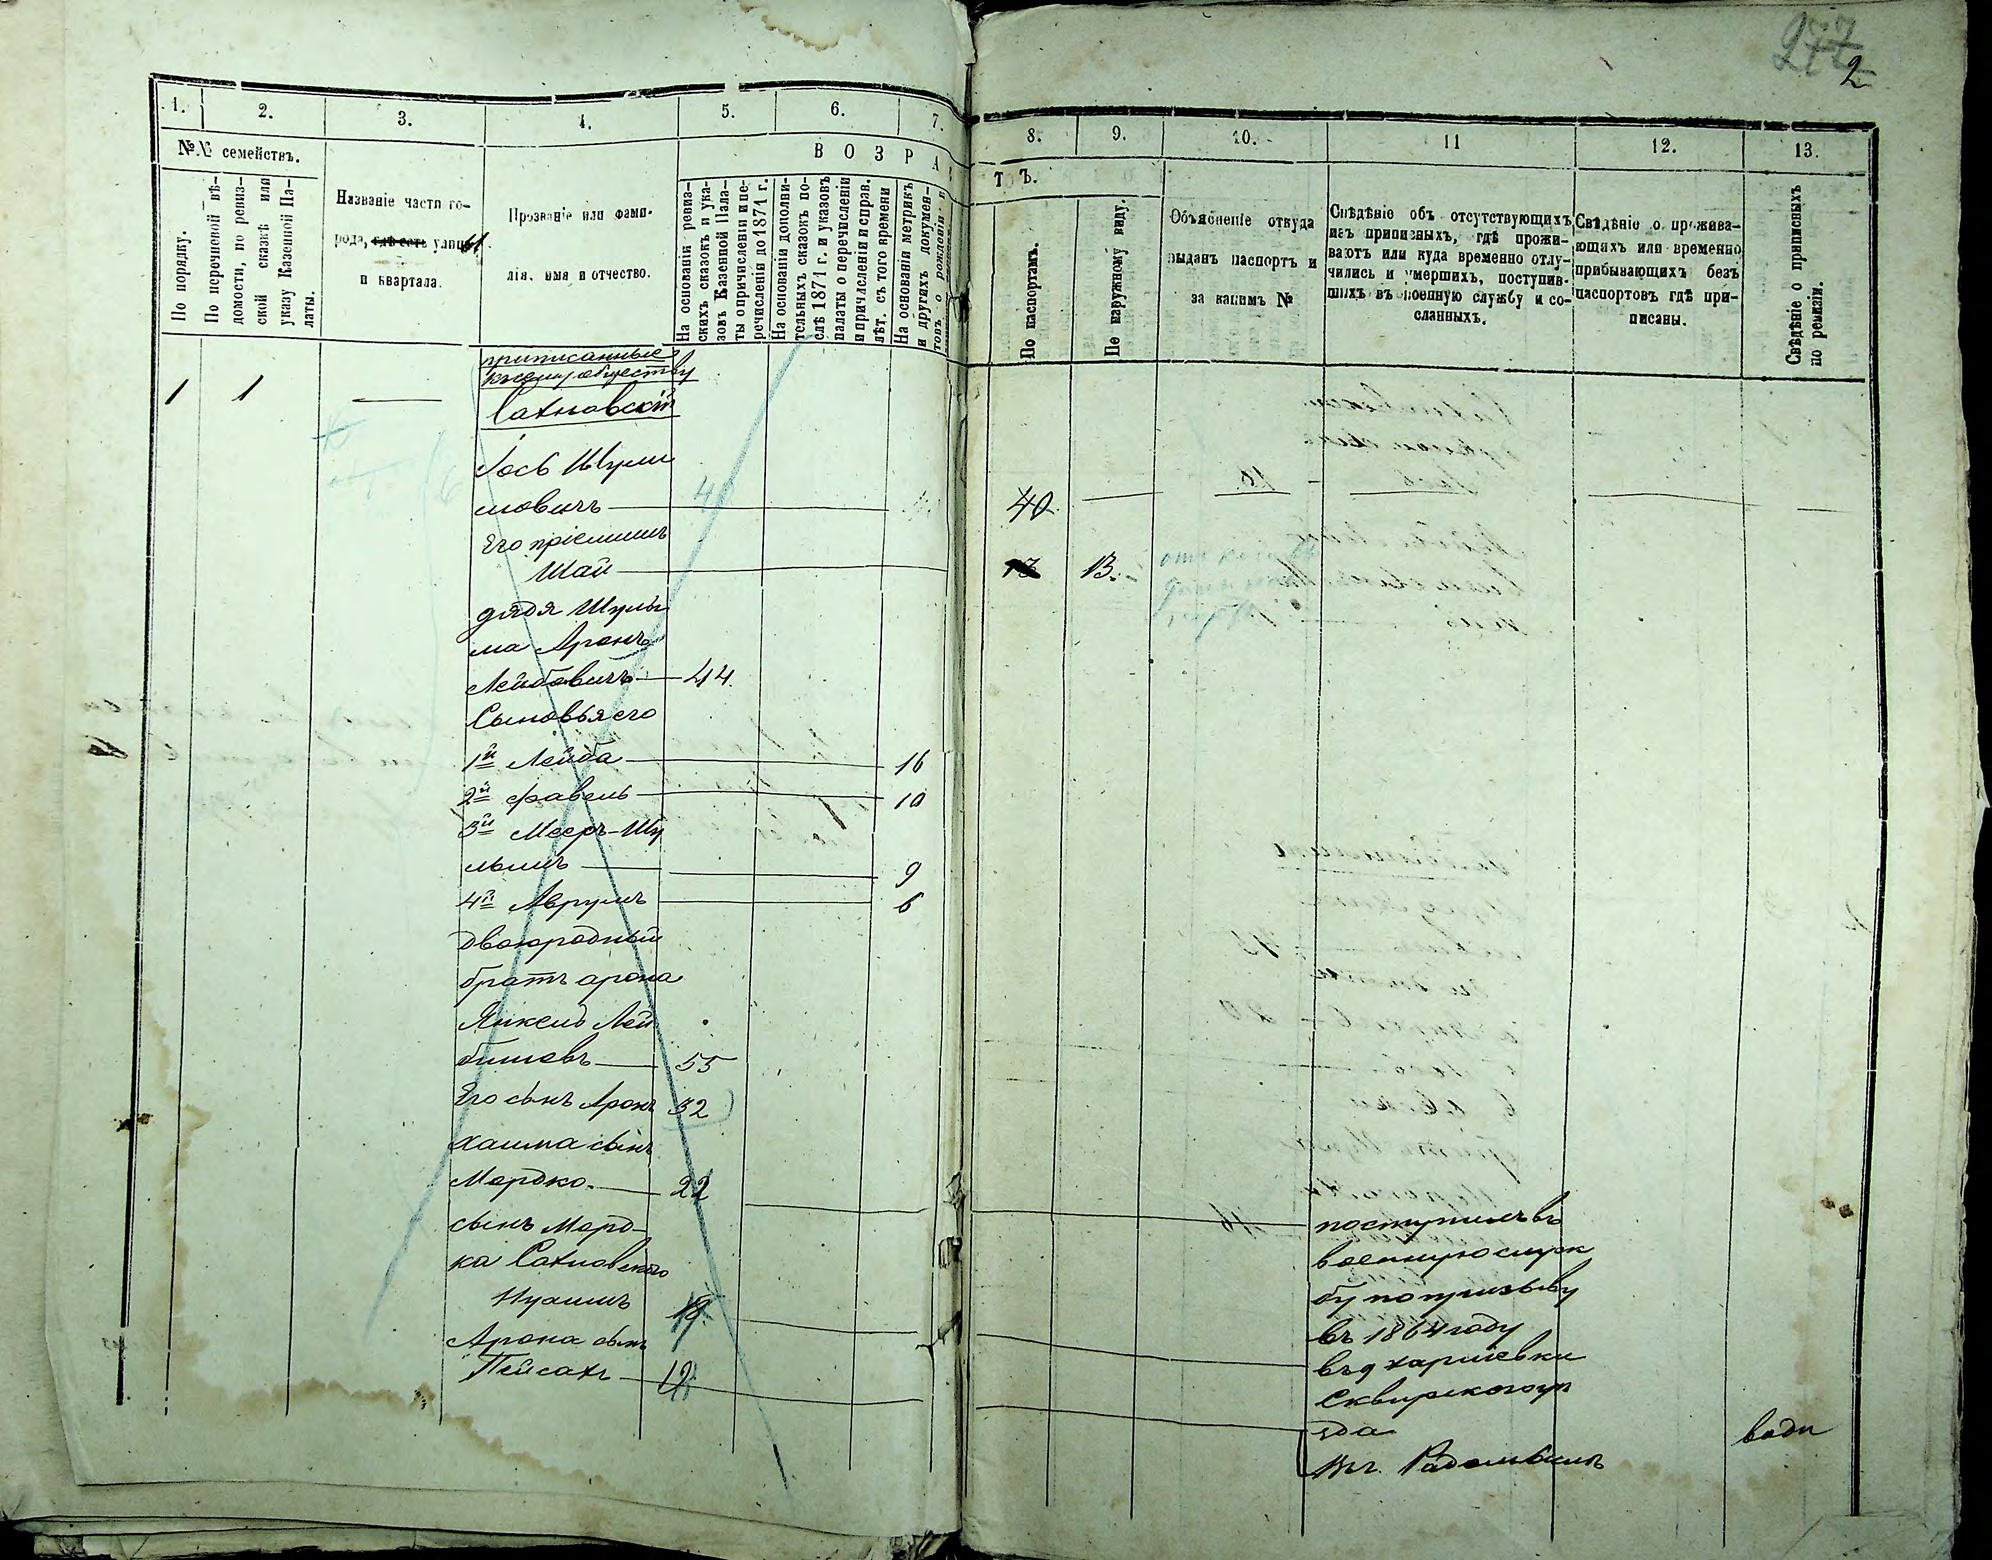 277
2
1.
2.
3.
4.
5.
6.
7.
8.
9.
10.
11
12.
13.
№№ семействъ.
По порядку.
По перечневой вѣ-
домости, по ревиз-
ской сказкѣ или
указу Казенной Па-
латы.
Названіе части го-
рода, гдѣ есть улицы
и квартала.
Прозваніе или фами-
лія, имя и отчество.
ВОЗРА
На основаніи ревиз-
скихъ сказокъ и ука-
зовъ Казенной Пала-
ты о причисленіи и пе-
речисленіи до 1871 г.
На основаніи дополни-
тельныхъ сказокъ по-
слѣ 1871 г. и указовъ
палаты о перечисленіи
и причисленіи и справ.
лѣт. съ того времени
На основаніи метрикъ
и другихъ докумен-
товъ о рожденіи и
ТЪ.
По паспортамъ.
По наружному виду.
Объясненіе откуда
выданъ паспортъ и
за какимъ №
Свѣдѣніе объ отсутствующихъ
изъ приписныхъ, гдѣ прожи-
ваютъ или куда временно отлу-
чились и умершихъ, поступив-
шихъ въ военную службу и со-
сланныхъ.
Свѣдѣніе о прожива-
ющихъ или временно
прибывающихъ безъ
паспортовъ гдѣ при-
писаны.
Свѣдѣніе о приписныхъ
по ревизіи.
приписанные
къ сему обществу
1 1 Сахновскій
Іось Шули
мовичъ 40
Его пріемышъ
Шая 13 13.
дядя Шулы
ма Аронъ
Лейбовичъ 44
Сыновья его
1й Лейба 16
2й Фавель 10
3й Мееръ-Шу
лымъ 9
4й Аврумъ 6
двоюродный
братъ арона
Янкель Лей
бишевъ 55
Его сынъ Аронъ 32
хаима сынъ
Мордко. 22
сынъ Морд-
ка Сахновского
Нухимъ
Арона сынъ
Пейсахъ 12
поступилъ въ
военную служ
бу по призыву
въ 1864 году
въ д харлiевки
Сквирского уѣ
зда
въ г. Радомыслѣ